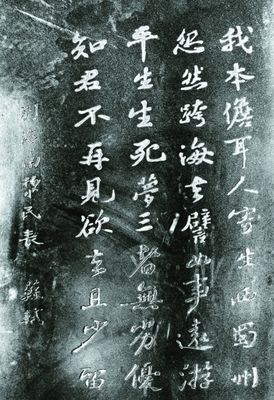 我本儋耳人寄生西蜀州
忽然跨海去譬如事遠游
平生生死夢三者無劣優
知君不再見欲去且少留
別海南黎民表 蘇軾